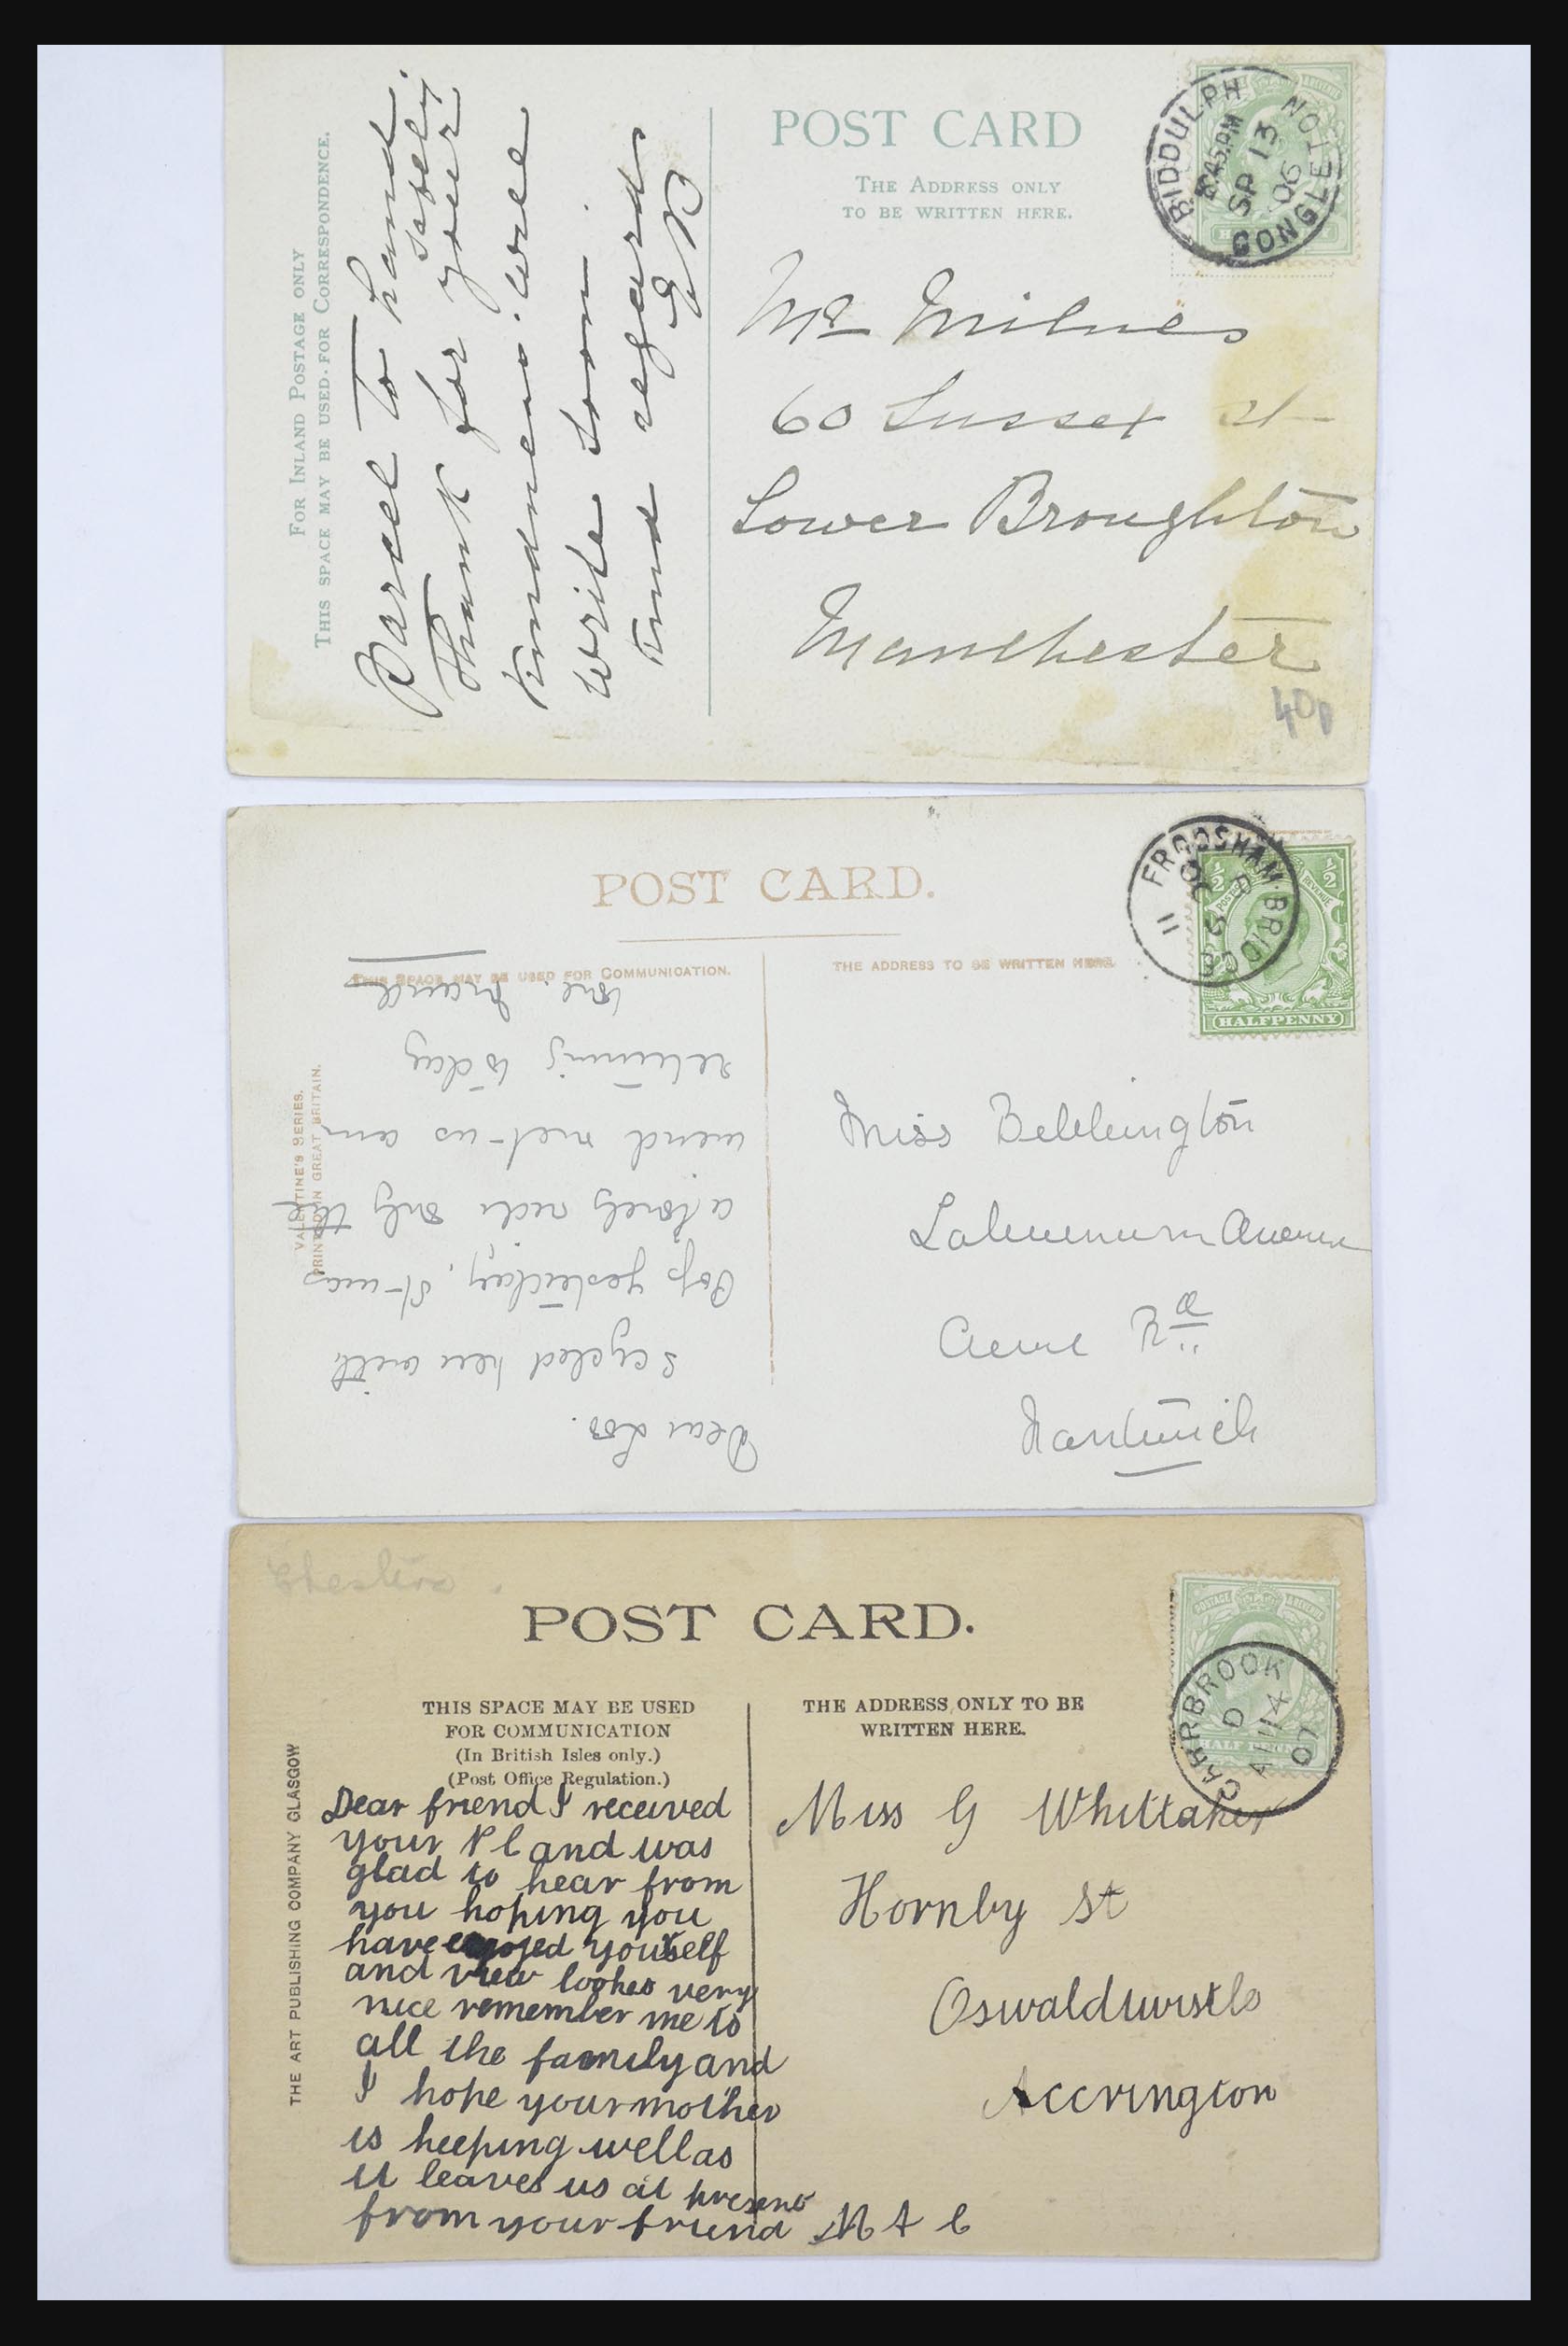 FOR INLAND POSTAGE ONLY
THIS SPACE MAY BE USED FOR CORRESPONDENCE.
Parcel to hand
safely.
Thank for your
kindness. will
write soon.
Kind regards
POST CARD
THE ADDRESS ONLY
TO BE WRITTEN HERE.
BIDDULPH CONGLETON
8.45PM
SP 13
06
Mr Milnes
60 Sussex St
Lower Broughton
Manchester
40p
POST CARD.
THIS SPACE MAY BE USED FOR COMMUNICATION.
THE ADDRESS TO BE WRITTEN HERE.
VALENTINE'S SERIES.
PRINTED IN GREAT BRITAIN.
FRODSHAM BRIDGE
11
1/2 1/2
POSTAGE REVENUE
HALFPENNY
Dear
cycled here with
Pop yesterday. It was
a lovely ride only the
wind met us am
returning today
Love
Miss Bebbington
Laburnum Avenue
Crewe Rd
Nantwich
Cheshire.
POST CARD.
THIS SPACE MAY BE USED
FOR COMMUNICATION
(In British Isles only.)
(Post Office Regulation.)
THE ADDRESS ONLY TO BE
WRITTEN HERE.
THE ART PUBLISHING COMPANY GLASGOW
POSTAGE & REVENUE
HALF PENNY
CARRBROOK
D
AU 14
07
Dear friend I received
your P C and was
glad to hear from
you hoping you
have enjoyed yourself
and view lookes very
nice remember me to
all the family and
I hope your mother
is keeping well as
it leaves us at present
from your friend M A C
Miss G Whittaker
Hornby St
Oswaldtwistle
Accrington